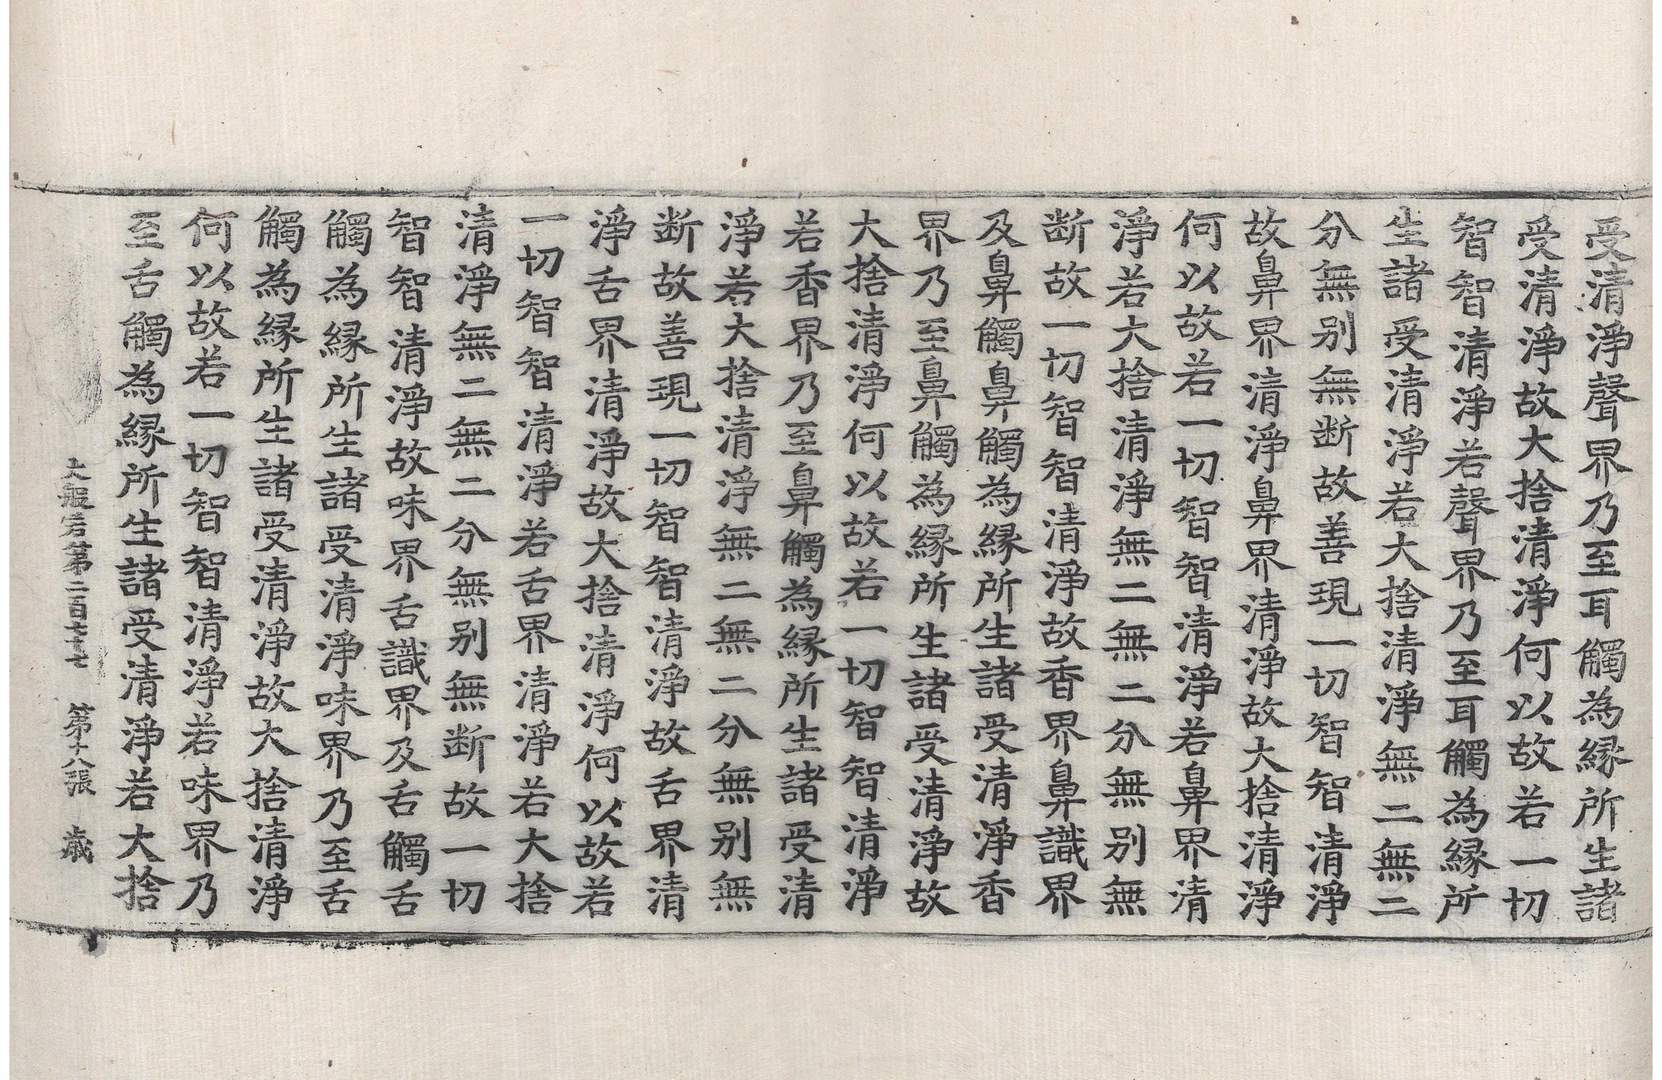 受清淨聲界乃至耳觸為縁所生諸
受清淨故大捨清淨何以故若一切
智智清淨若聲界乃至耳觸為縁所
生諸受清淨若大捨清淨無二無二
分無别無断故善現一切智智清淨
故鼻界清淨鼻界清淨故大捨清淨
何以故若一切智智清淨若鼻界清
淨若大捨清淨無二無二分無别無
断故一切智智清淨故香界鼻識界
及鼻觸鼻觸為縁所生諸受清淨香
界乃至鼻觸為縁所生諸受清淨故
大捨清淨何以故若一切智智清淨
若香界乃至鼻觸為縁所生諸受清
淨若大捨清淨無二無二分無别無
断故善現一切智智清淨故舌界清
淨舌界清淨故大捨清淨何以故若
一切智智清淨若舌界清淨若大捨
清淨無二無二分無别無断故一切
智智清淨故味界舌識界及舌觸舌
觸為縁所生諸受清淨味界乃至舌
觸為縁所生諸受清淨故大捨清淨
何以故若一切智智清淨若味界乃
至舌觸為縁所生諸受清淨若大捨
大般若第二百七十七 第十八張 歲